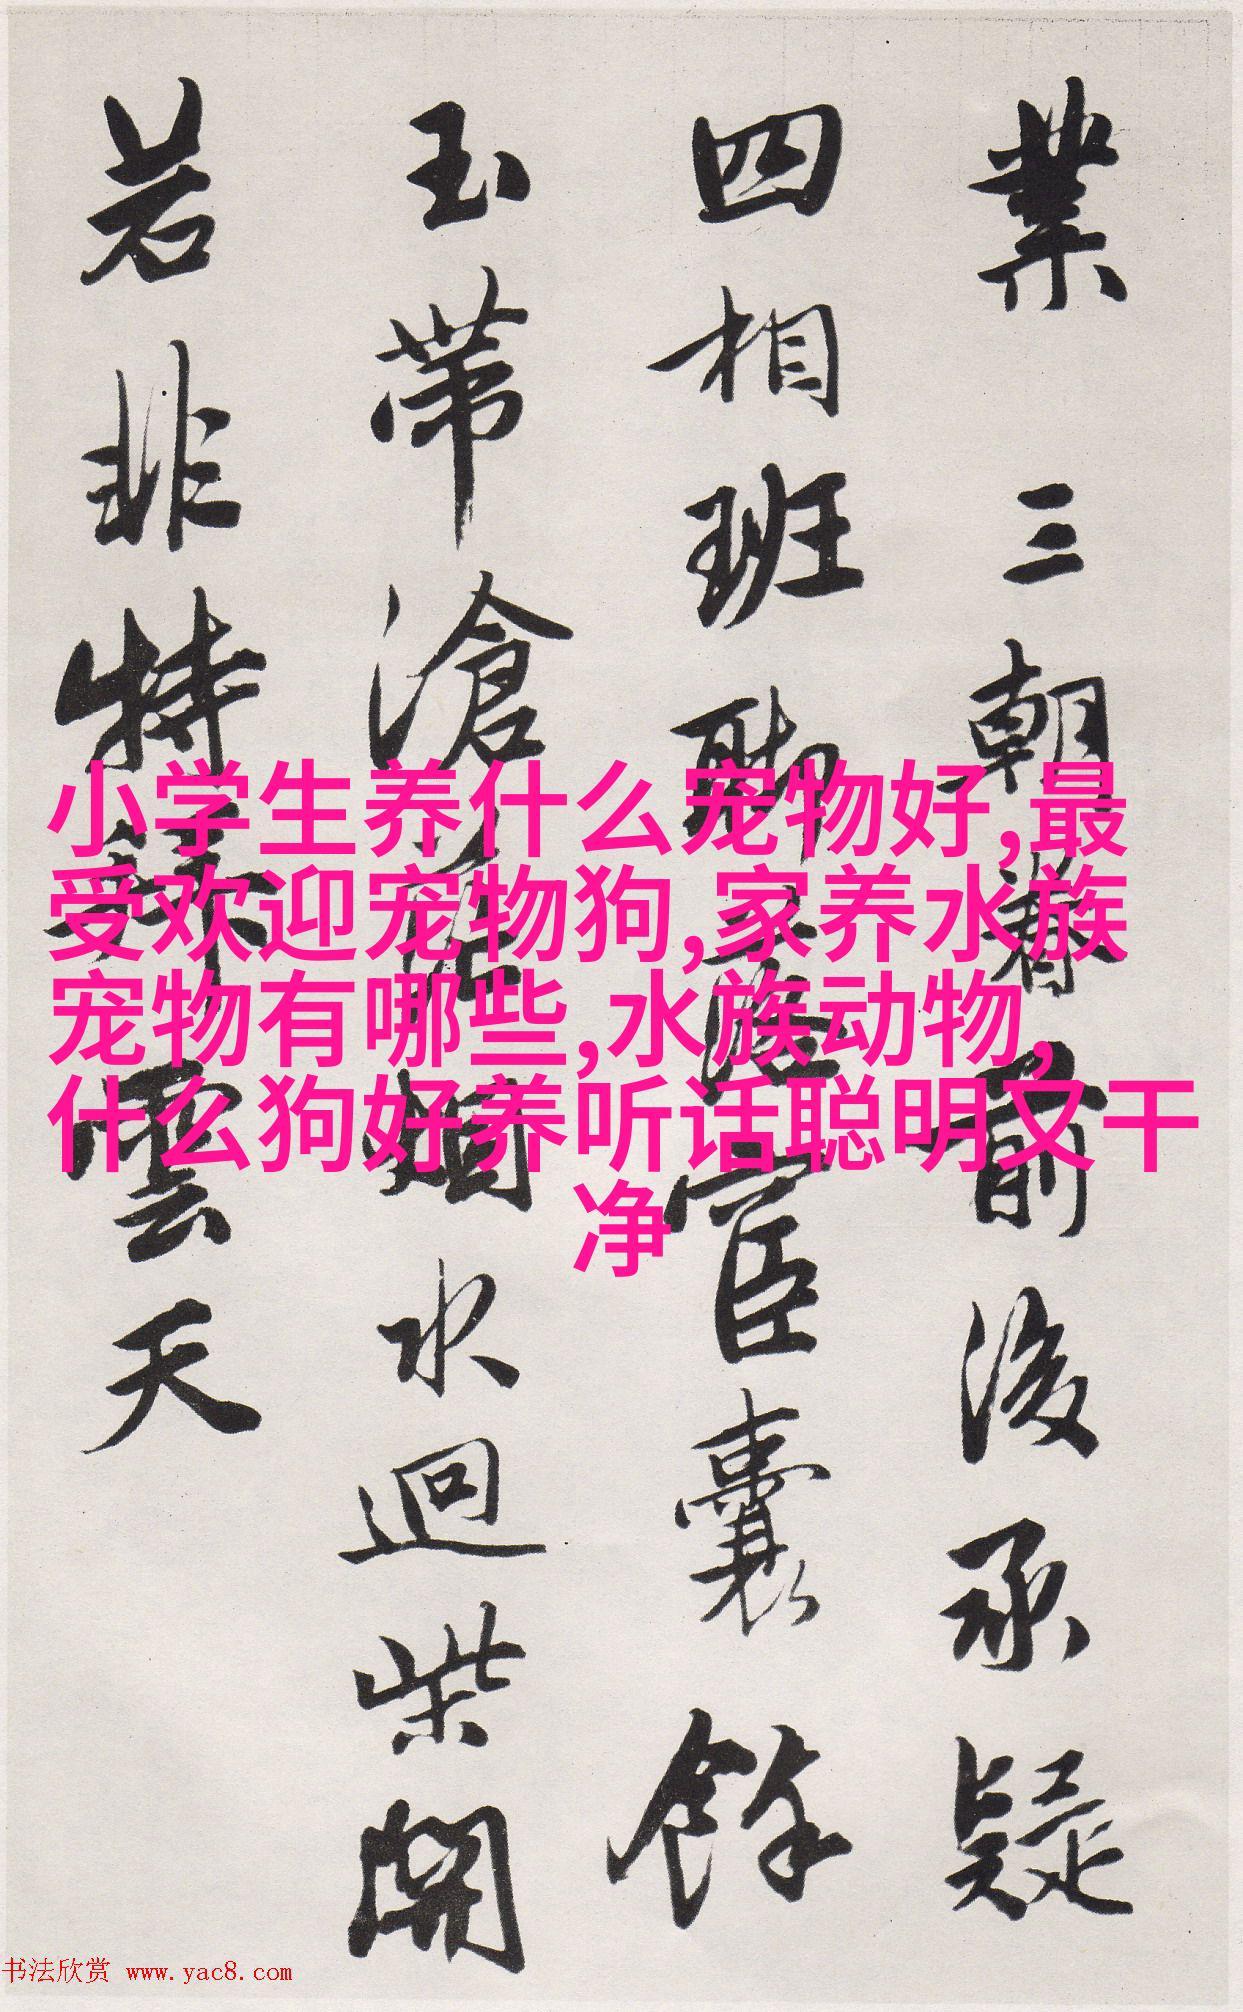 業 三朝前後承疑
四相班聯宦囊餘
玉帶滄水迴柴開
若非特雲天
小学生养什么宠物好,最
受欢迎宠物狗,家养水族
宠物有哪些,水族动物,
什么狗好养听话聪明又干
净
书法欣赏 www.yac8.com